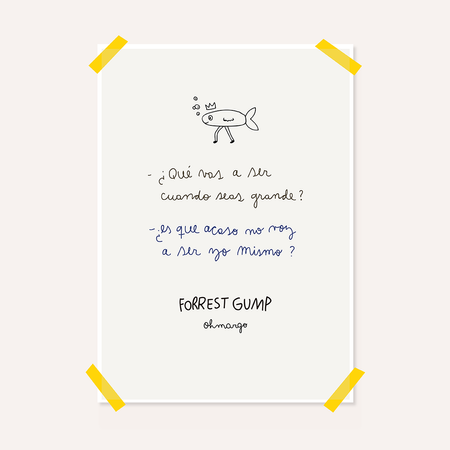 - ¿Qué vas a ser
cuando seas grande?
- ¿es que acaso no voy
a ser yo mismo?
FORREST GUMP
ohmargo